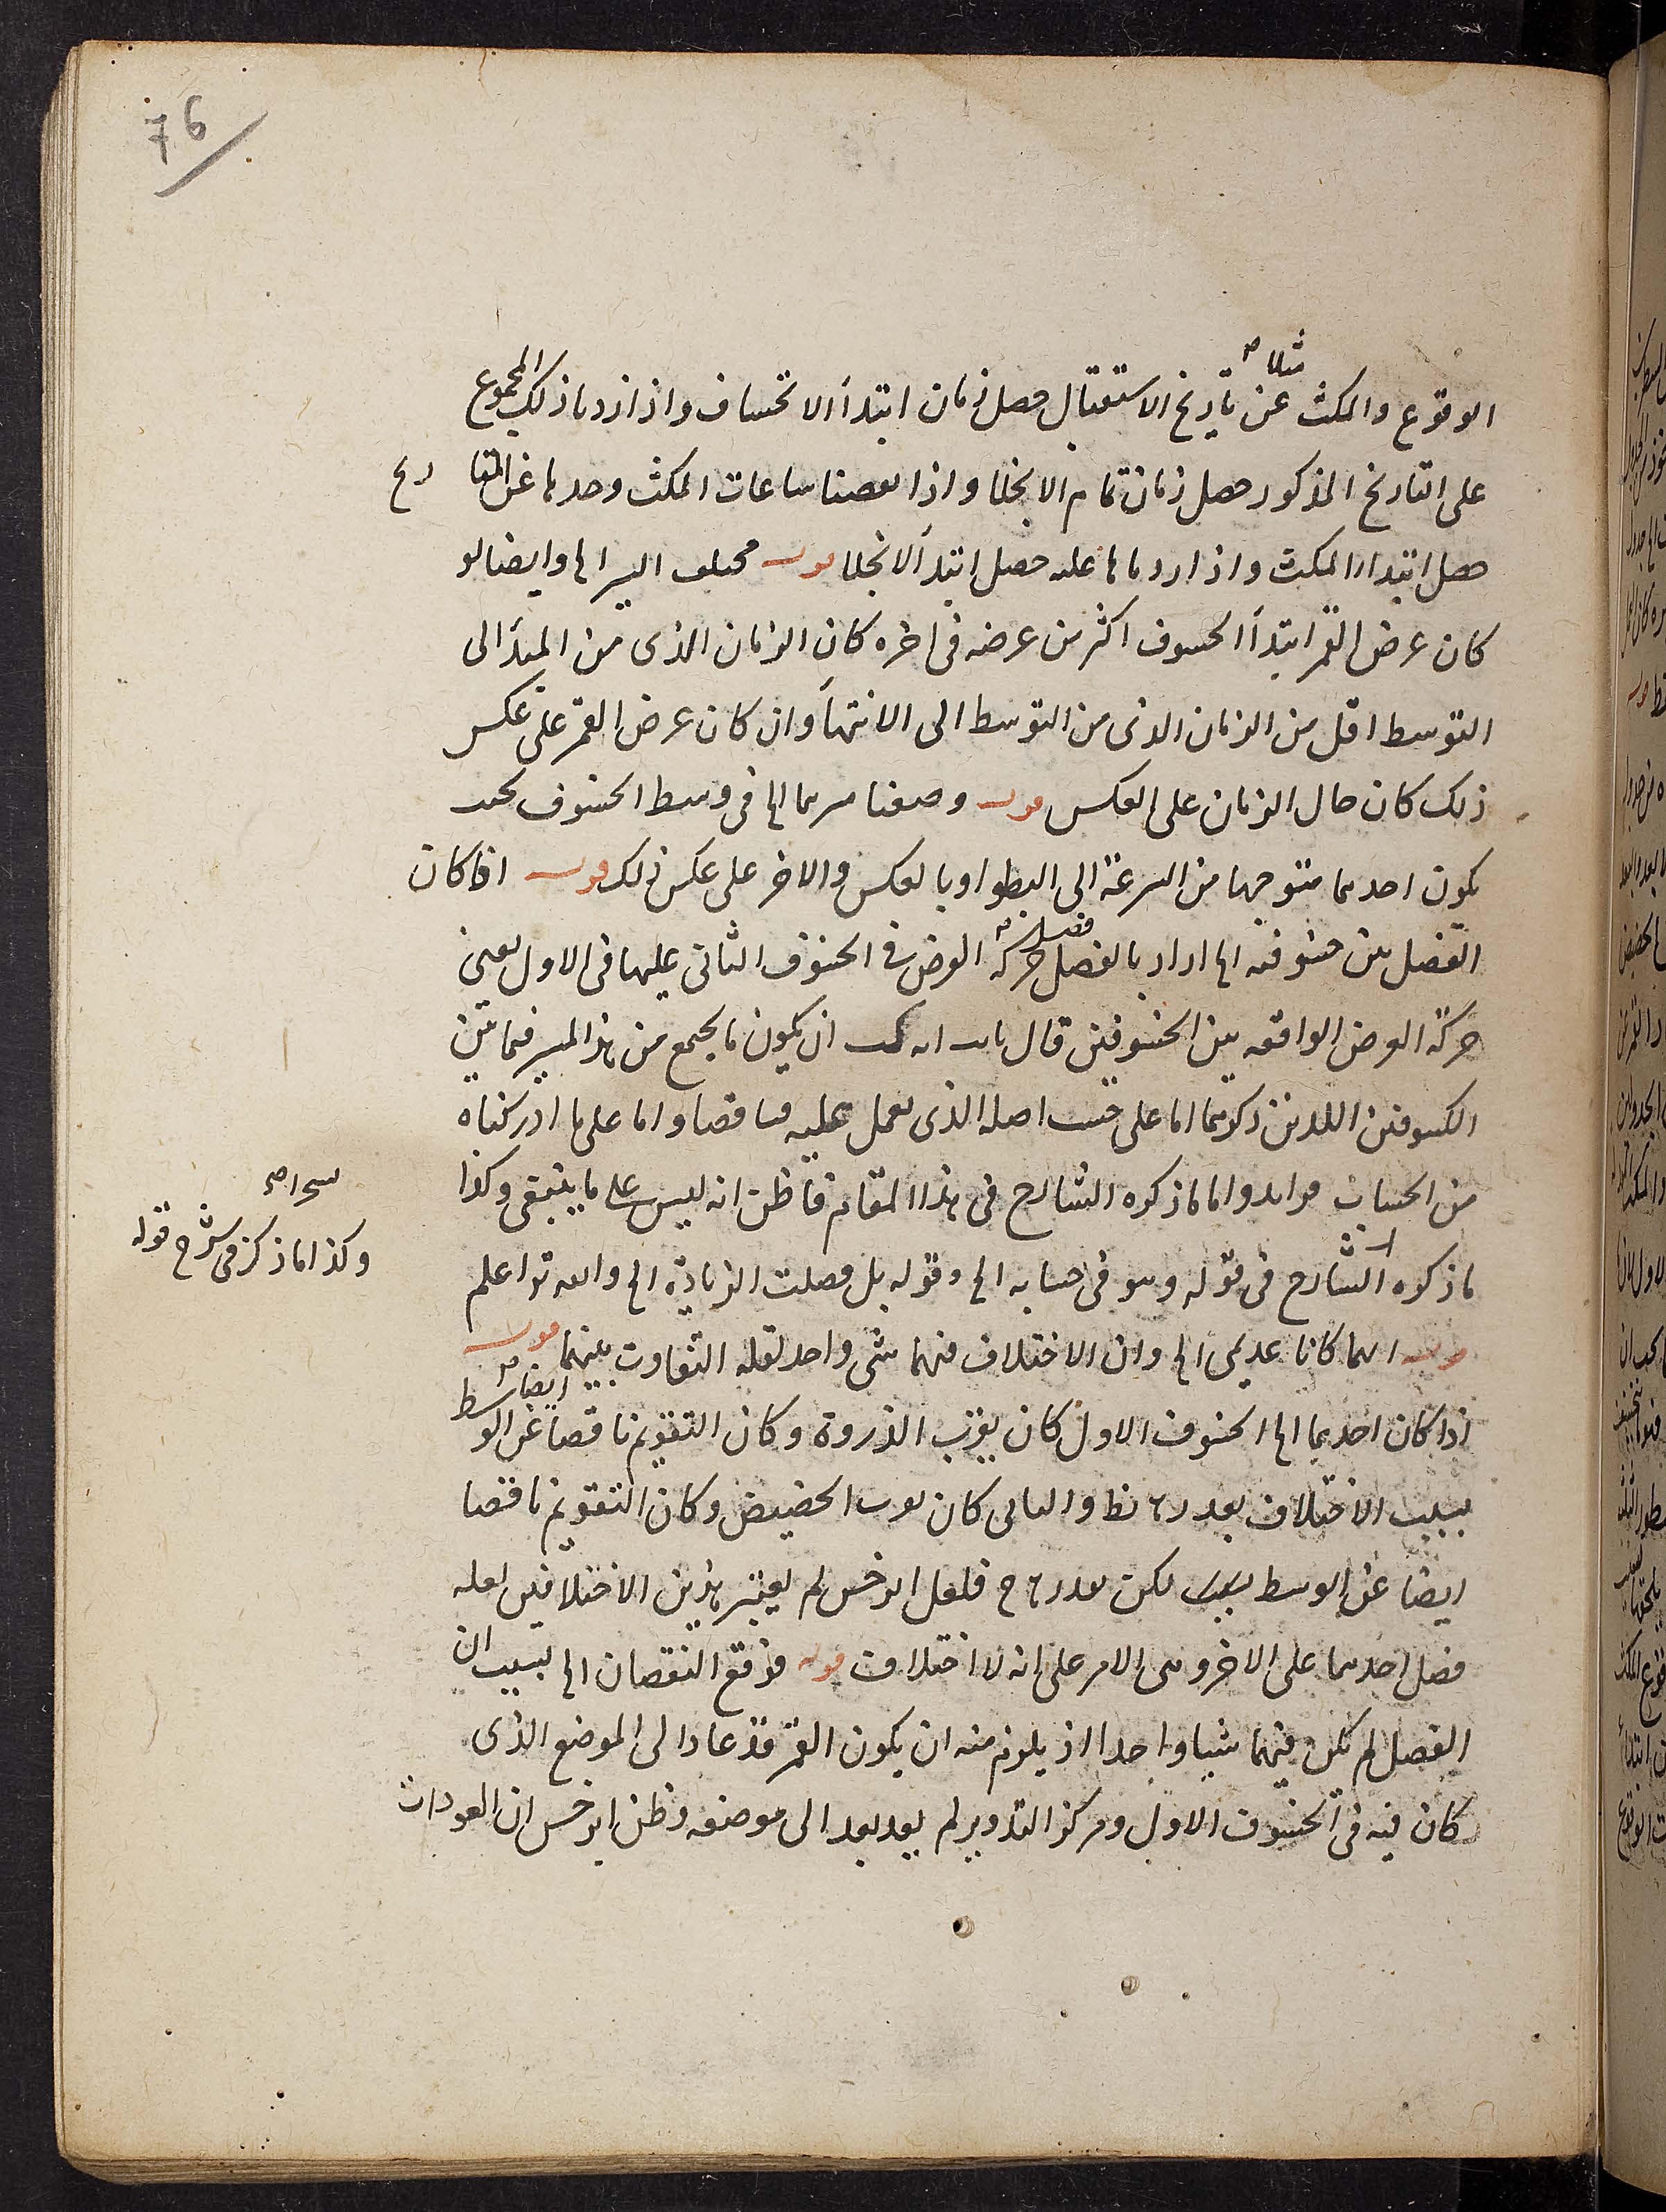 76
مثلا صح
الوقوع والمكث عن تاريخ الاستقبال حصل زمان ابتدأ الانخساف واذا زدنا ذلك المجموع
على التاريخ المذكور حصل زمان تمام الانجلا واذا نقصنا ساعات المكث وحدها عن التا ريخ
حصل ابتداء المكث واذا زدناها عليه حصل ابتدأ الانجلا قوله مختلف السير الخ وايضا لو
كان عرض القمر ابتدأ الخسوف اكثر من عرضه فى اخره كان الزمان الذى من المبدأ الى
التوسط اقل من الزمان الذى من التوسط الى الانتهأ وان كان عرض القمر على عكس
ذلك كان حال الزمان على العكس قوله وصفنا الخ فى وسط الخسوف بحيث
يكون احدهما متوجها من السرعة الى البطو او بالعكس والاخر على عكس ذلك قوله اذا كان
فضل صح
الفضل بين خسوفيه الخ اراد بالفضل حركة العرض فى الخسوف الثانى عليها فى الاول يعنى
حركة العرض الواقعه بين الخسوفين قال ان يكون ما يجمع من هذا المسير فيما بين
الكسوفين اللذين ذكرتهما اما على حسب اصله الذى يعمل عليه فناقصا واما على ما ادركناه
من الحساب فزايدا واما ما ذكره الشارح فى هذا المقام فاظن انه ليس على ما ينبغى وكذا
ما ذكره الشارح فى قوله وهو فى حسابه الخ وقوله بل فضلت الزيادة الخ والله تعا اعلم
وكذا ما ذكر فى شرح قوله
قوله انهما كانا عديمى الخ وان الاختلاف فيهما شى واحد لقلة التفاوت بينهما قوله
ايضا صح
اذا كان احدهما الخ الخسوف الاول كان بقرب الذروة وكان التقويم ناقصا عن الوسط
بسبب الاختلاف بقدر نط والثانى كان بقرب الحضيض وكان التقويم ناقصا
ايضا عن الوسط بسبب لكن بقدر فلعل ابرخس لم يعتبر هذين الاختلافين لقلة
فضل احدهما على الاخر وبنى الامر على انه لا اختلاف قوله فوقع النقصان الخ بسبب ان
الفضل لم يكن فيهما شيا واحدا اذ يلزم منه ان يكون القمر قد عاد الى الموضع الذى
كان فيه فى الخسوف الاول ومركز التدوير لم يعد بعد الى موضعه وظن ابرخس ان العودات